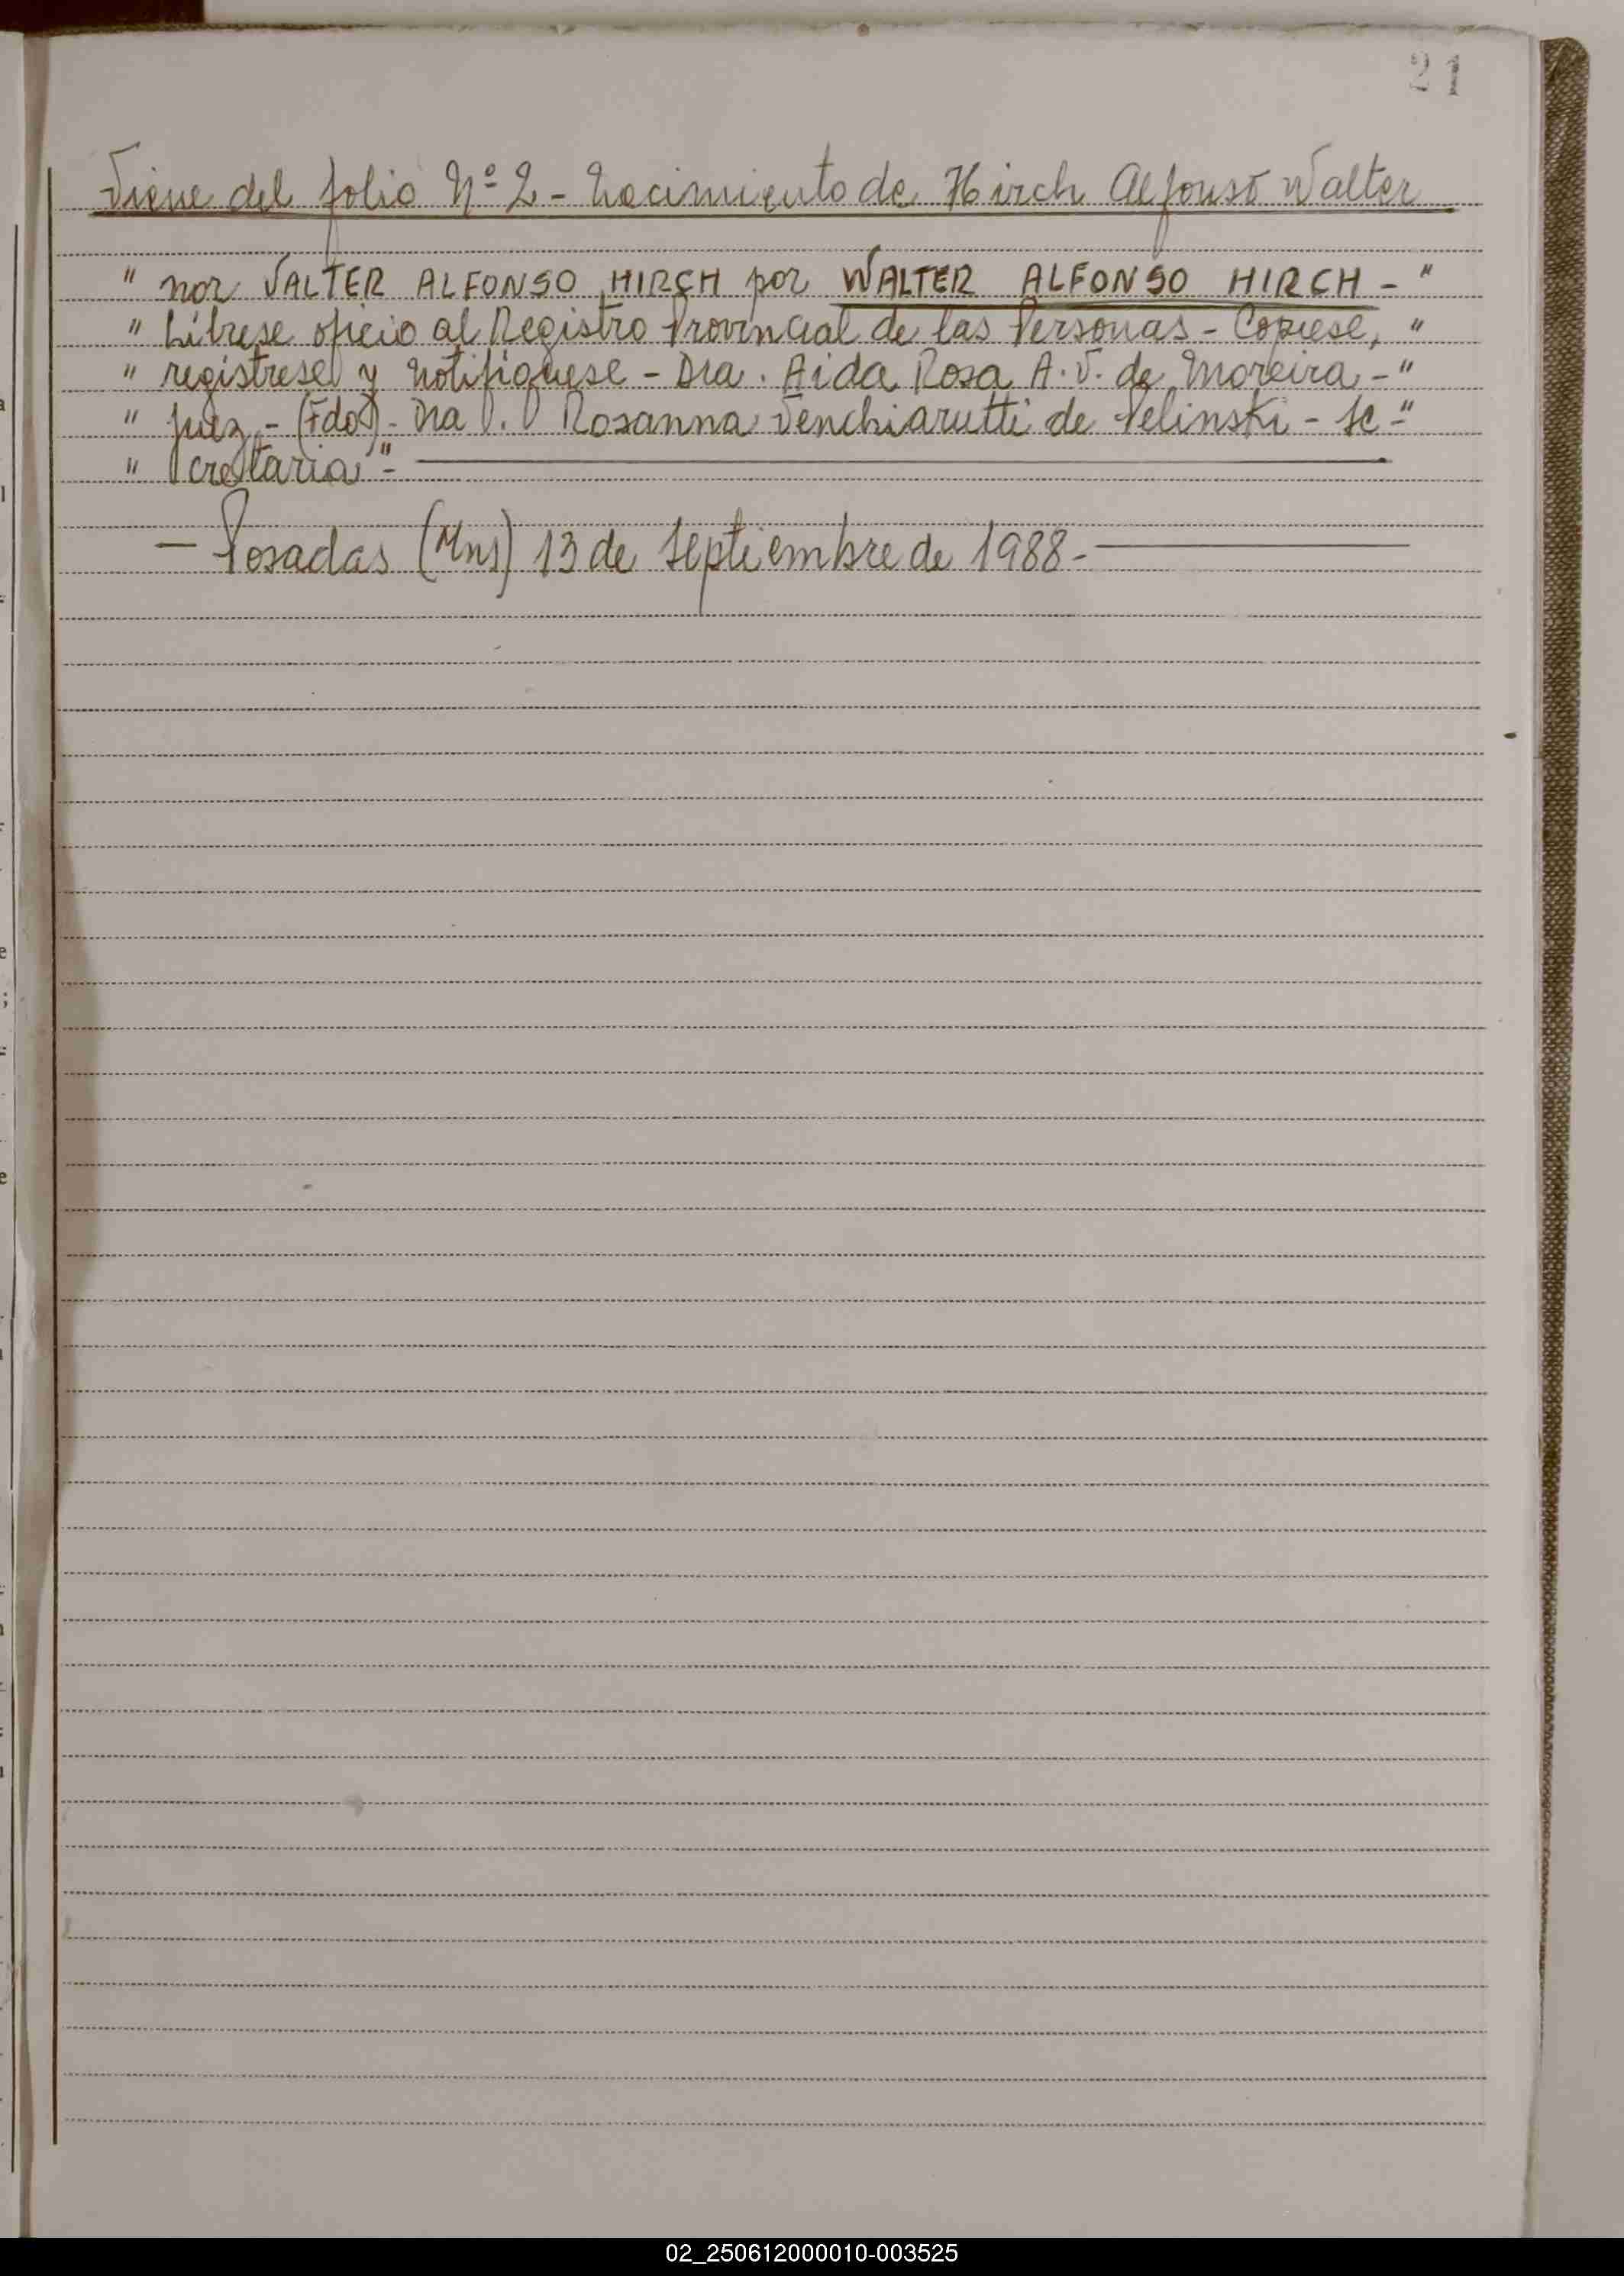 21
Viene del folio Nº 2 - Nacimiento de Hirch Alfonso Walter
" nor VALTER ALFONSO HIRCH por WALTER ALFONSO HIRCH - "
" Líbrese oficio al Registro Provincial de las Personas - Copiese, "
" registrese y notifiquese - Dra. Aida Rosa A. V. de Moreira - "
" Juez - (Fdos) - Dra. Rosanna Venchiarutti de Pelinski - Se - "
" cretaria" -
— Posadas (Mns) 13 de Septiembre de 1988 -
02_250612000010-003525